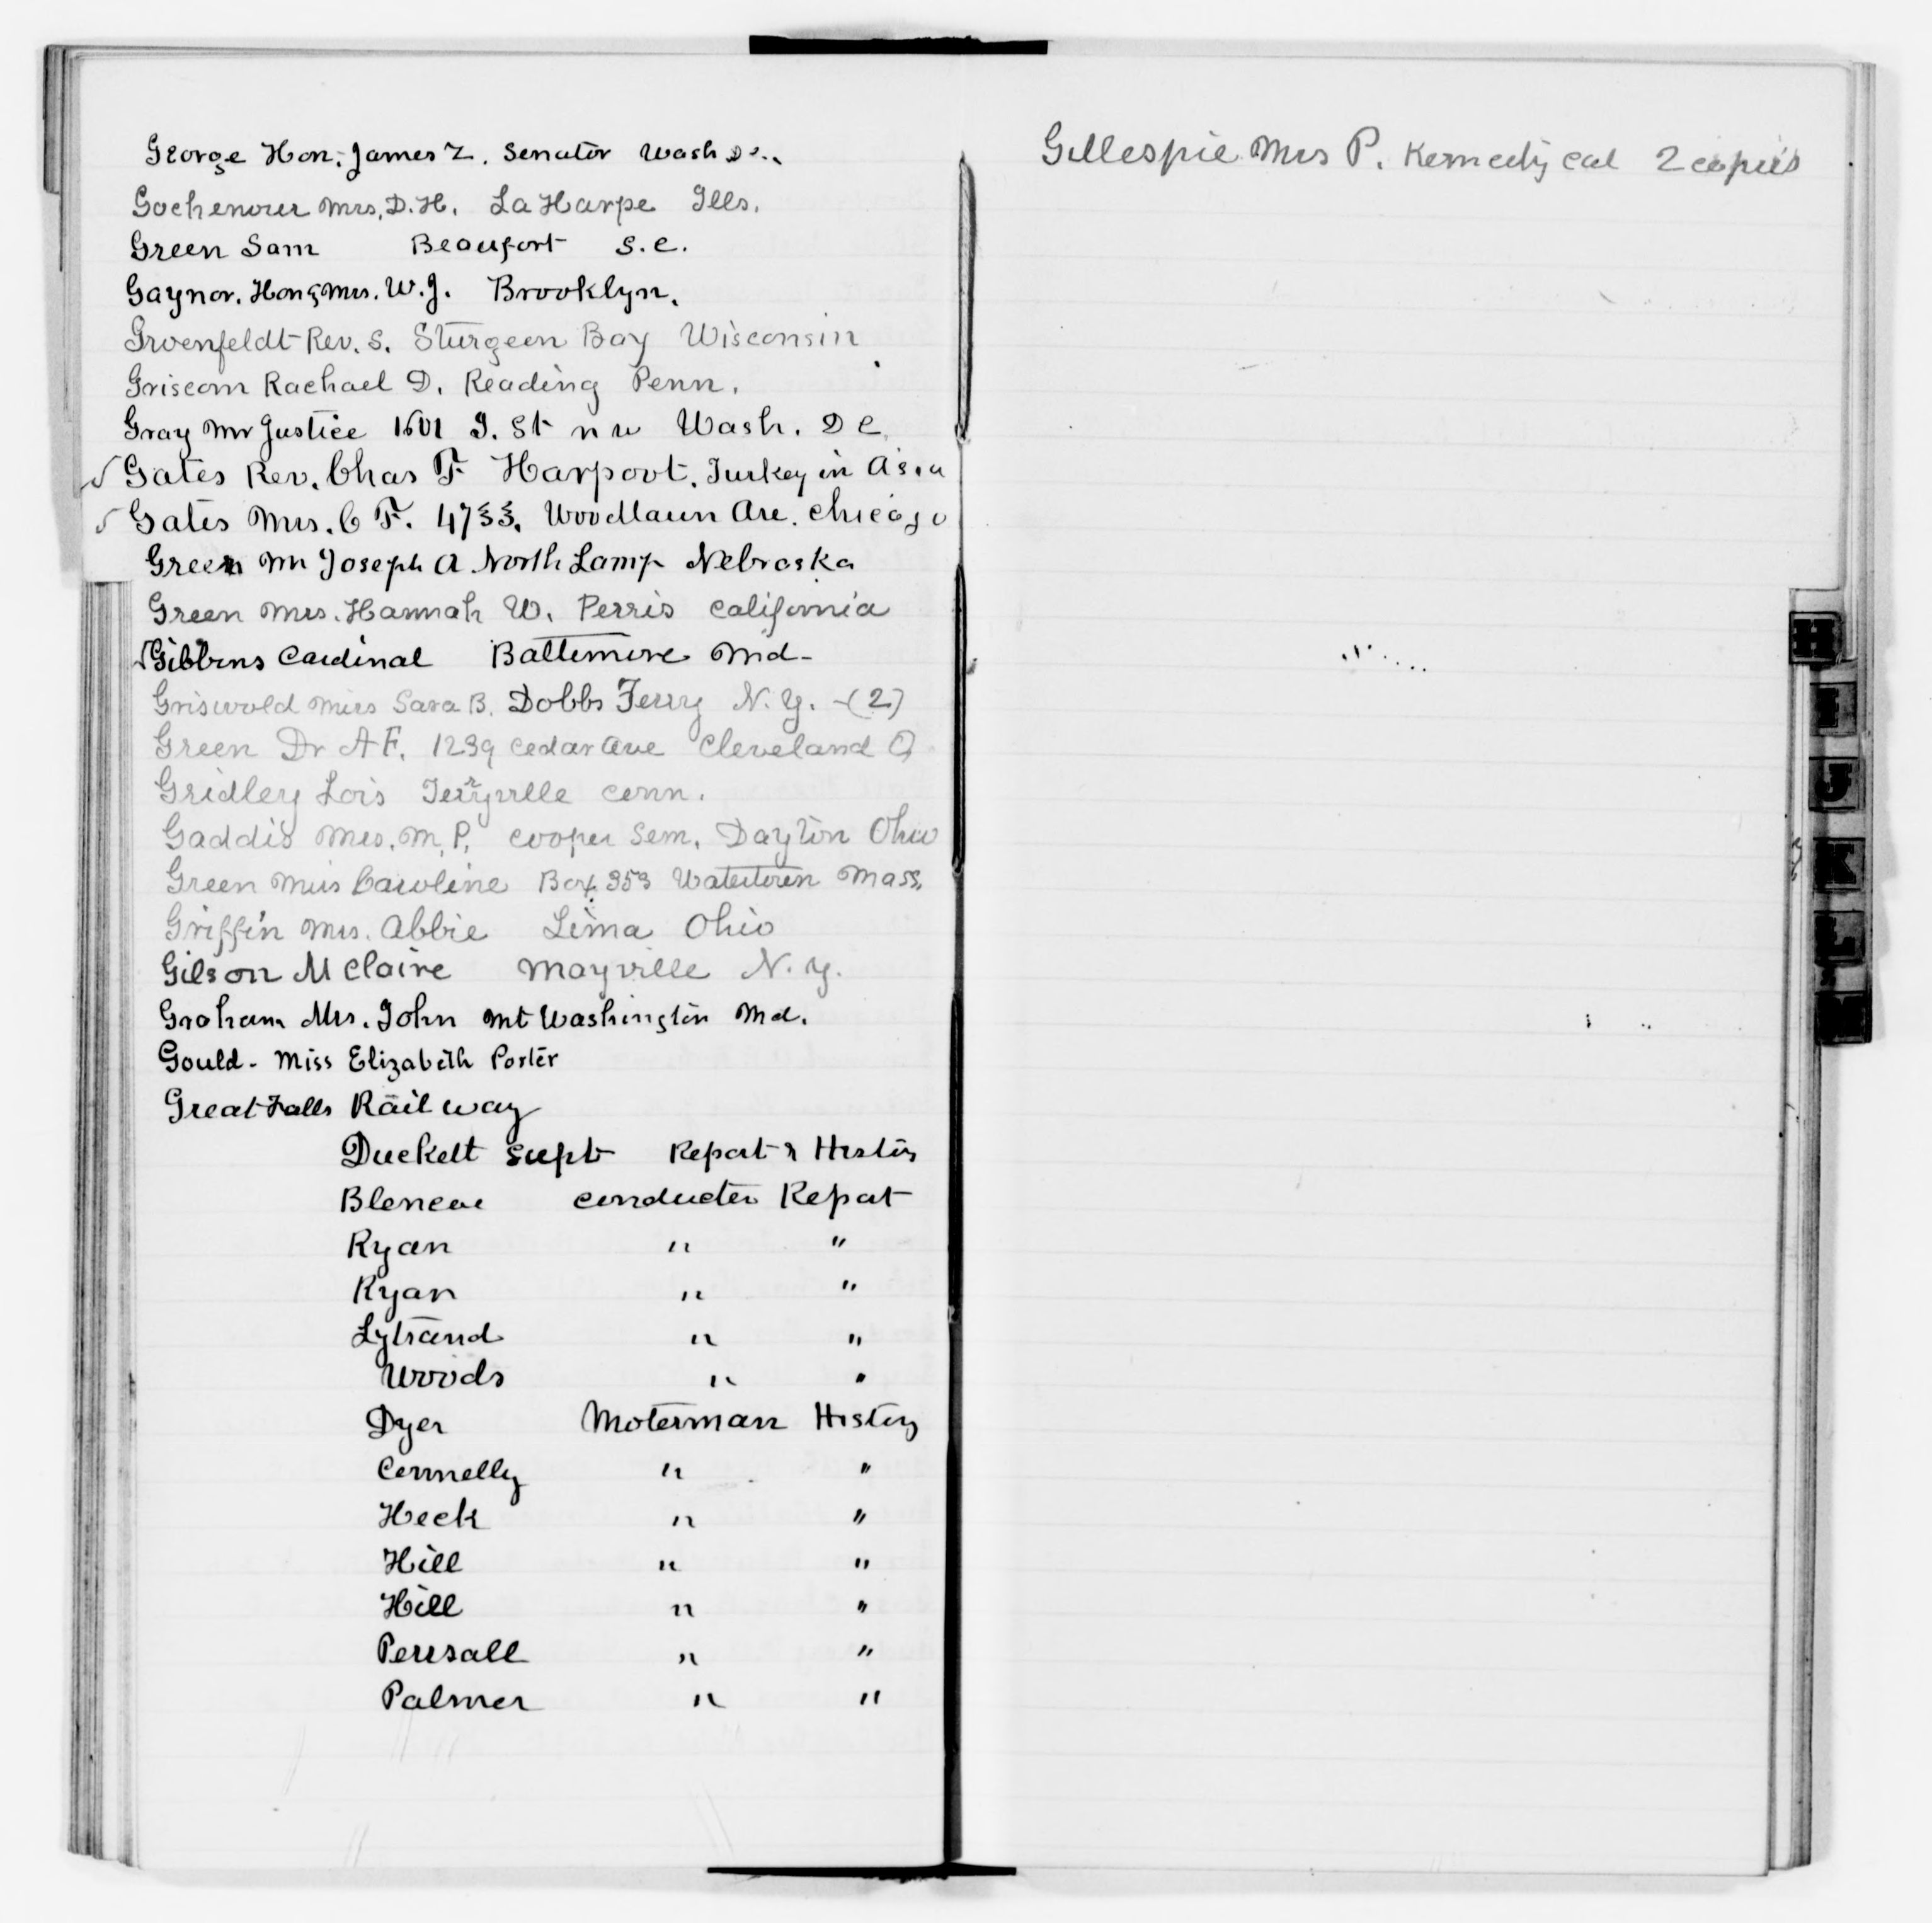 George Hon. James Z. Senator Wash D.C.
Gochenour Mrs. D.H. La Harpe Ills.
Green Sam Beaufort S.C.
Gaynor. Hon & Mrs. W.J. Brooklyn.
Groenfeldt Rev. S. Sturgeon Bay Wisconsin
Griscom Rachael D. Reading Penn.
Gray Mr Justice 1601 I. St n w Wash. D C.
√ Gates Rev. Chas F Harpoot. Turkey in Asia
√ Gates Mrs. C F. 4733. Woodlawn Ave. Chicago
Green Mr Joseph A North Lamp Nebraska
Green Mrs. Hannah W. Perris California
√ Gibbons Cardinal Baltimore Md-
Griswold Miss Sara B. Dobbs Ferry N.Y. -(2)
Green Dr A F. 1239 Cedar Ave Cleveland O
Gridley Lois Terryville Conn.
Gaddis Mrs. M. P. Cooper Sem. Dayton Ohio
Green Miss Caroline Box 353 Watertown Mass.
Griffin Mrs. Abbie Lima Ohio
Gilson M Claire Mayville N.Y.
Graham Mrs. John Mt Washington Md.
Gould- Miss Elizabeth Porter
Great Falls Railway
Duckett Supt Report & History
Blencoe Conductor Report
Ryan " "
Ryan " "
Lytrand " "
Woods " "
Dyer Moterman History
Connelly " "
Heck " "
Hill " "
Hill " "
Peirsall " "
Palmer " "
Gillespie Mrs P. Kennedy Cal 2 copies
H
I
J
K
L
M